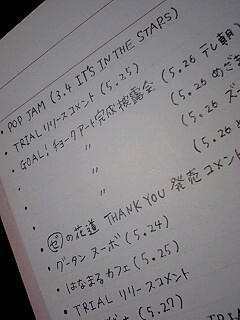 • POP JAM (3.4 IT'S IN THE STARS)
• TRIAL リリースコメント (5.25)
• GOAL. チョークアート完成披露会 (5.26 テレ朝)
• 〃 (5.26 めざま
• 〃 (5.26 ズー
• 〃 (5.26
• ゼの花道 THANK YOU 発売コメント
• グータンヌーボ (5.24)
• はなまるカフェ (5.25)
• TRIAL リリースコメント
(5.27)